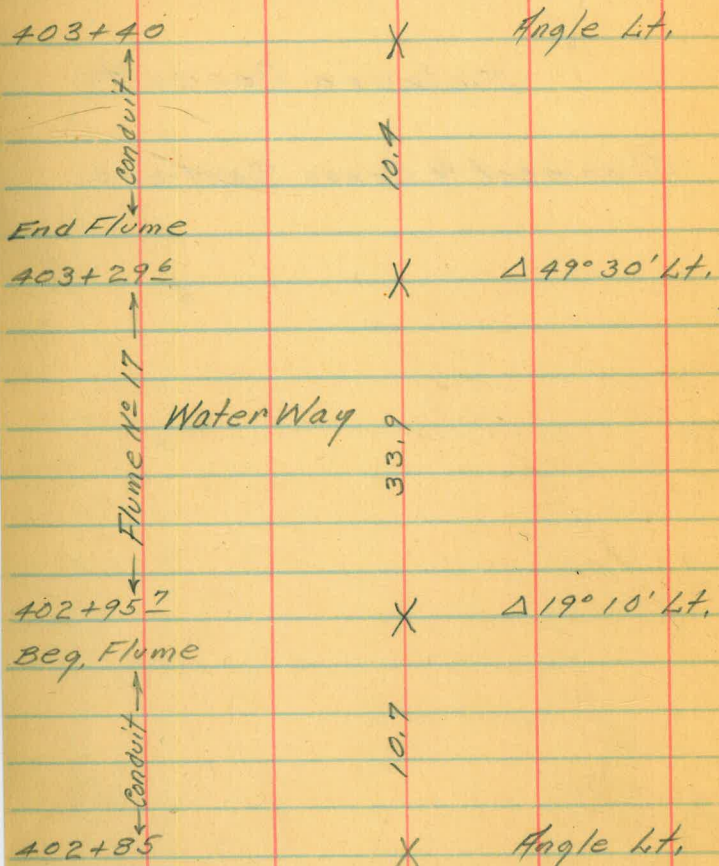 403+40 Angle Lt.
← Conduit →
10.4
End Flume
403+29⁶ Δ 49° 30' Lt.
← Flume Nº 17 →
Water Way
33.9
402+95⁷ Δ 19° 10' Lt.
Beg. Flume
← Conduit →
10.7
402+85 Angle Lt.